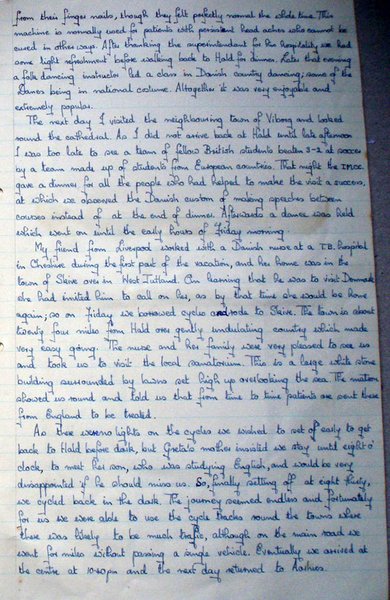 from their finger nails, though they felt perfectly normal the whole time. This
machine is normally used for patients with persistent head aches who cannot be
cured in other ways. After thanking the superintendant for his hospitality we had
some light refreshment before walking back to Hald for dinner. Later that evening
a folk dancing instructor led a class in Danish country dancing; some of the
Danes being in national costume. Altogether it was very enjoyable and
extremely popular.
The next day I visited the neighbouring town of Viborg and looked
round the cathedral. As I did not arrive back at Hald until late afternoon
I was too late to see a team of fellow British students beaten 3-2 at soccer
by a team made up of students from European countries. That night the
gave a dinner, for all the people who had helped to make the visit a success,
at which we observed the Danish custom of making speeches between
courses instead of at the end of dinner. Afterwards a dance was held
which went on until the early hours of Friday morning.
My friend from Liverpool worked with a Danish nurse at a T.B. hospital
in Cheshire during the first part of the vacation, and her home was in the
town of Skive over in West Jutland. On learning that he was to visit Denmark
she had invited him to call on her, as by that time she would be home
again; so on Friday we borrowed cycles and rode to Skive. The town is about
twenty four miles from Hald over gently undulating country which made
very easy going. The nurse and her family were very pleased to see us
and took us to visit the local sanatorium. This is a large white stone
building surrounded by lawns set high up overlooking the sea. The matron
showed us round and told us that from time to time patients are sent there
from England to be treated.
As there were no lights on the cycles we wished to set of early to get
back to Hald before dark, but Greta's mother insisted we stay until eight o'
clock, to meet her son, who was studying English, and would be very
dissapointed if he should miss us. So, finally setting off at eight thirty,
we cycled back in the dark. The journey seemed endless and fortunately
for us we were able to use the cycle tracks round the towns where
there was likely to be much traffic, although on the main road we
went for miles without passing a single vehicle. Eventually we arrived at
the centre at 10.40pm and the next day returned to Aarhus.